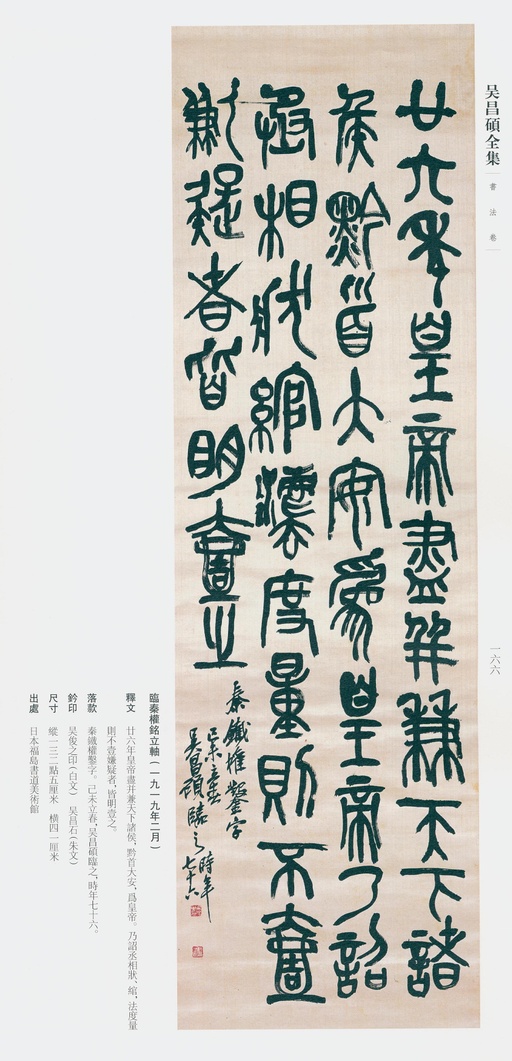 吴昌碩全集
書法卷
一六六
廿六年皇帝盡并兼天下諸
侯黔首大安爲皇帝乃詔
丞相狀綰灋度量則不壹
歉疑者皆明壹之
秦鐵權鑿字
己未立春
吴昌碩臨之時年
七十六
臨秦權銘立軸（一九一九年二月）
釋文　廿六年皇帝盡并兼天下諸侯，黔首大安，爲皇帝。乃詔丞相狀、綰，法度量
則不壹嫌疑者，皆明壹之。
落款　秦鐵權鑿字。己未立春，吴昌碩臨之，時年七十六。
鈐印　吴俊之印（白文）　吴昌石（朱文）
尺寸　縱一三二點五厘米　横四一厘米
出處　日本福島書道美術館